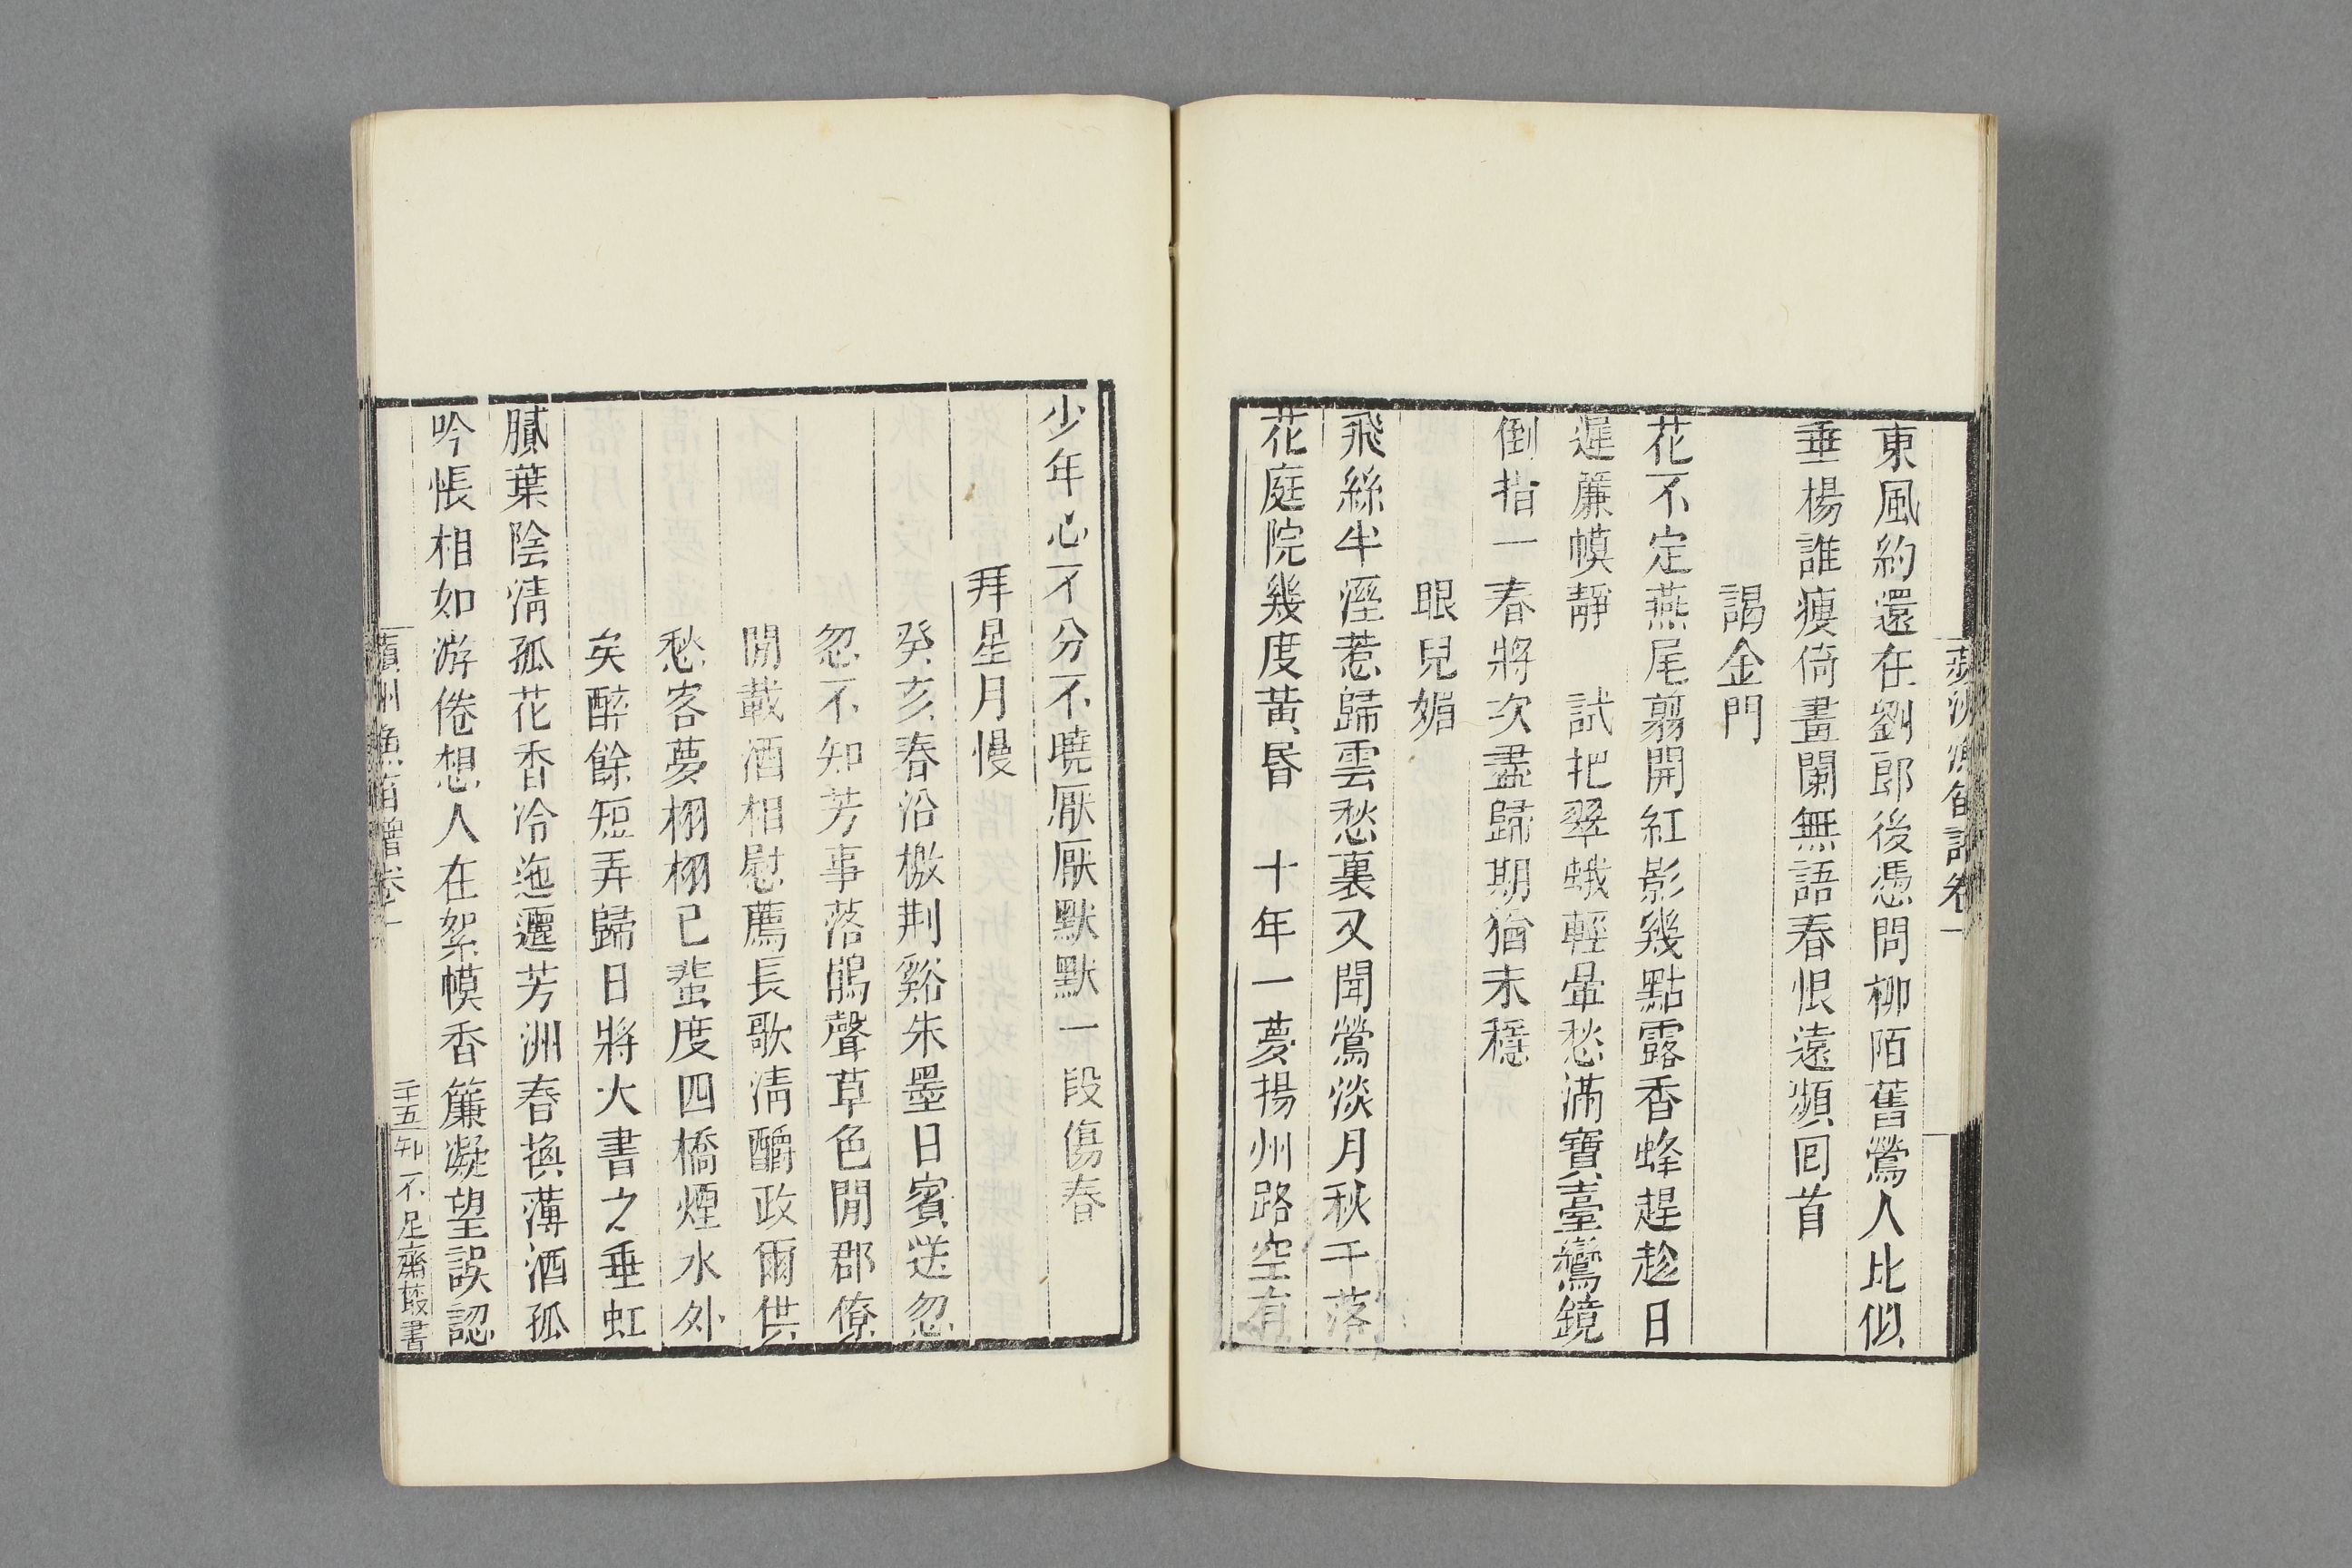 蘋洲漁笛譜卷一
東風約還在劉郎後憑問柳陌舊鶯人比似
垂楊誰瘦倚畫闌無語春恨遠頻回首
謁金門
花不定燕尾翦開紅影幾點露香蜂趕趁日
遲簾幙靜　試把翠蛾輕暈愁滿寶臺鸞鏡
倒指一春將次盡歸期猶未穩
眼兒媚
飛絲半溼惹歸雲愁裏又聞鶯淡月秋千落
花庭院幾度黃昏　十年一夢揚州路空有
少年心不分不曉厭厭默默一段傷春
拜星月慢
癸亥春沿檄荆谿朱墨日賓送忽
忽不知芳事落鵑聲草色閒郡僚
閒載酒相慰薦長歌淸釂政爾供
愁客夢栩栩已蜚度四橋煙水外
矣醉餘短弄歸日將大書之垂虹
膩葉陰淸孤花香冷迤邐芳洲春換薄酒孤
吟悵相如游倦想人在絮幙香簾凝望誤認
蘋洲漁笛譜卷一
二十五
知不足齋叢書